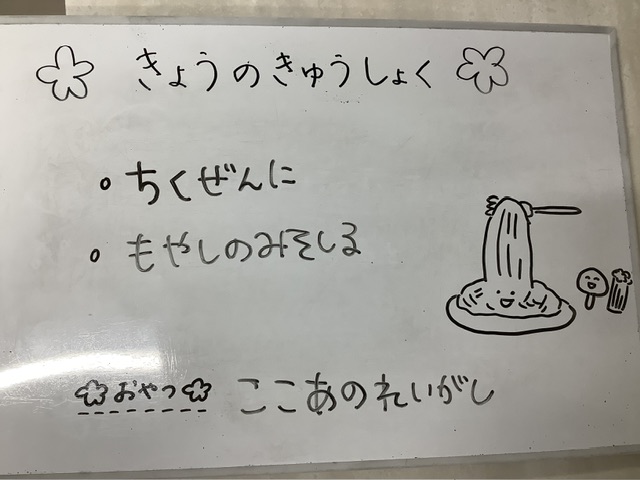 きょうのきゅうしょく
ちくぜんに
もやしのみそしる
おやつ ここあのれいがし